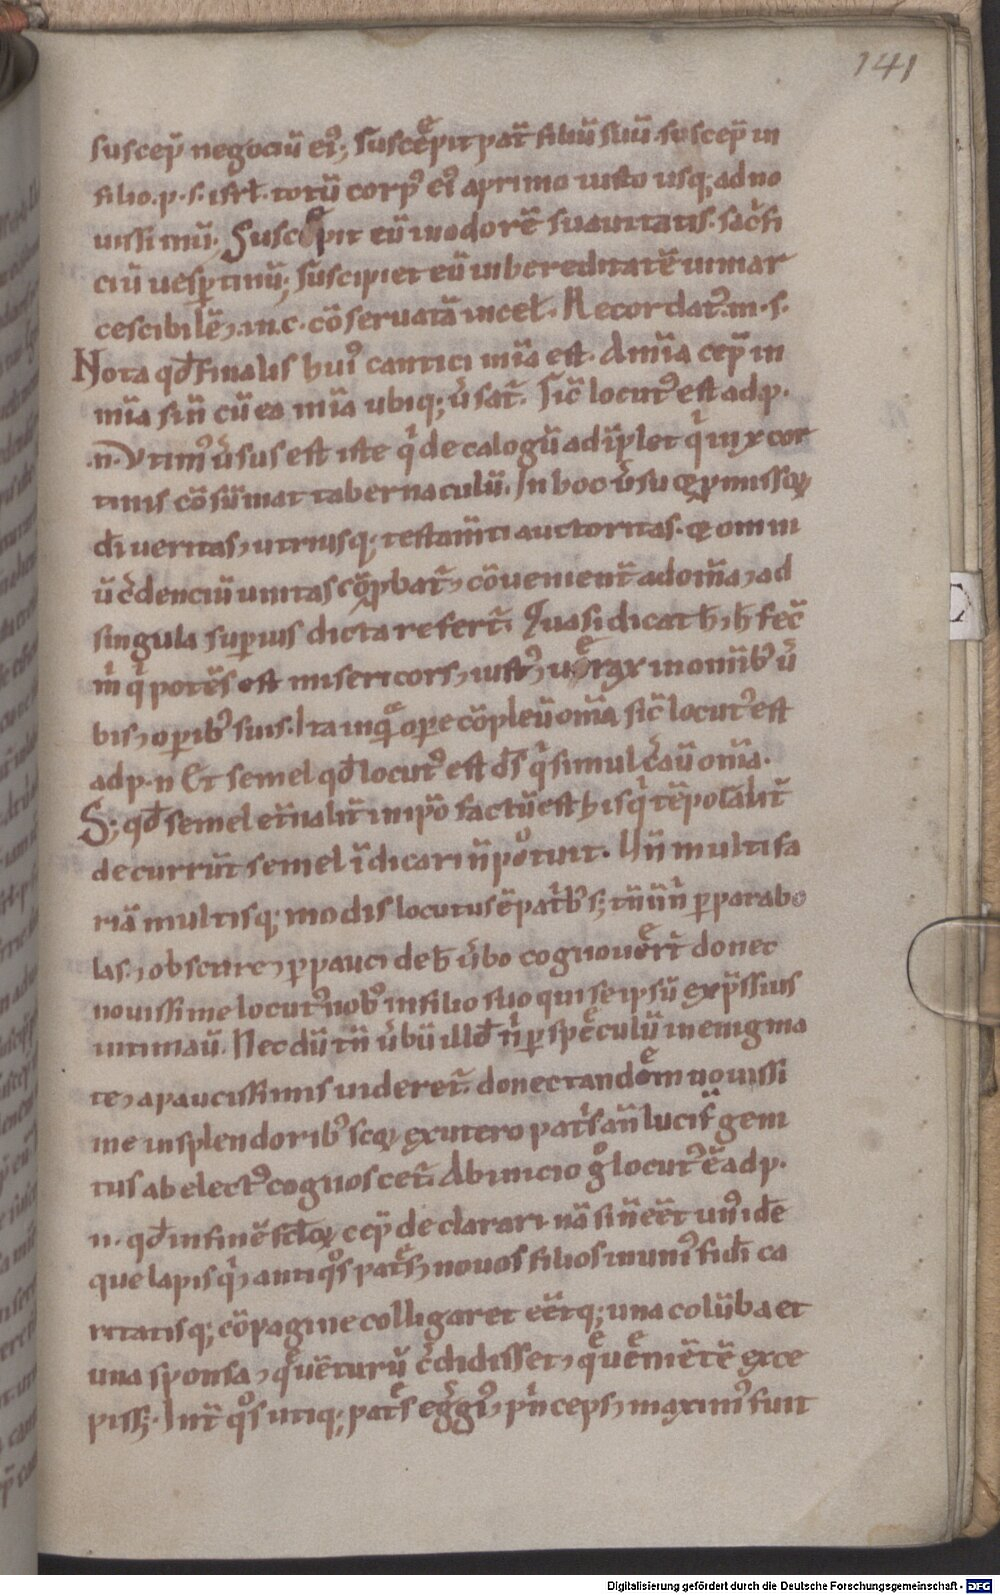 141
suscep̄ negociū ei⁹; Suscepit pat̄ filiū suū. suscep̄ in
filio. p. s. isrł. totū corp⁹ ei⁹ a primo iusto usq; ad no
uissimū. Suscepit eū in odorē suauitatis. sac̄fi
ciū uesp̄tinū; Suscipiet eū in hereditatē inmar
cescibilē, . in. c. cōseruatā in celł. Recordat⁹. m. s.
Nota qđ finalis hui⁹ cantici mīa est. A mīa cep̄ in
mīa sīn cū ea mīa ubiq; ūsat̄. Sic̄ locut⁹ est ad. p.
n. Vtim⁹ ūsus est iste q̄ decalogū adīplet q̄ in x cor
tinis cōsūmat tabernaculū. In hoc ūsu ę p̄missoꝝ
dī ueritas, utriusq; testam̄ti auctoritas. ę omni
ū c̄denciū unitas cōp̄bat̄, cōuenient̄ ad om̄a, ad
singula sup̄ius dicta refert̄. Quasi dicat h̄, h̄ fec̄
m̄ q̄ potēs est misericors, iust⁹, uerax in omīb⁹ ū
bis, op̄ib⁹ suis. Ita inq̄ ope cōpleū om̄a, sic̄ locut⁹ est
ad p. n Et semel qđ locut⁹ est dS̄ q̄ simul c̄aū om̄a.
S; qđ semel et̄nalit̄ in ip̄o factū est h̄ isq̄ tēporalit̄
decurrūt semel īdicari n̄ potuit. Un̄ multifa
riā multisq; modis locutus ē pat̄b⁹ s; tn̄ n̄n̄ p̄ parabo
las, obscure, p̄ pauci de h̄ ūbo cognouer̄t donec
nouissime locut⁹ nob⁹ in filio suo qui se ipsū exp̄ssius
intimaū. Nec dū tn̄ ūbū illđ n̄ p̄ speculū in enigma
te, a paucissimis uideret̄. donec tandem nouissi
me in splendorib⁹ scoꝝ ex utero pat̄s an̄ lucif̄ geni
tus ab elect⁹ cognoscet̄. Ab inicio g̊ locut⁹ ē ad p.
n. qđ in finē scłoꝝ cep̄ declarari. nā sīn eēt un⁹ idē
que lapis q̄, antiq̊s pat̄s, nouos filios in uni⁹ fidi ca
ritatisq; cōpagine colligaret eētq; una colūba et
una sponsa, q̄ uēturū c̄didisset, q̄ ueniētē exce
piss;. Int̄ q̊s utiq; pat̄s eḡgi⁹, p̄nceps, maxim⁹ fuit
Digitalisierung gefördert durch die Deutsche Forschungsgemeinschaft - DFG